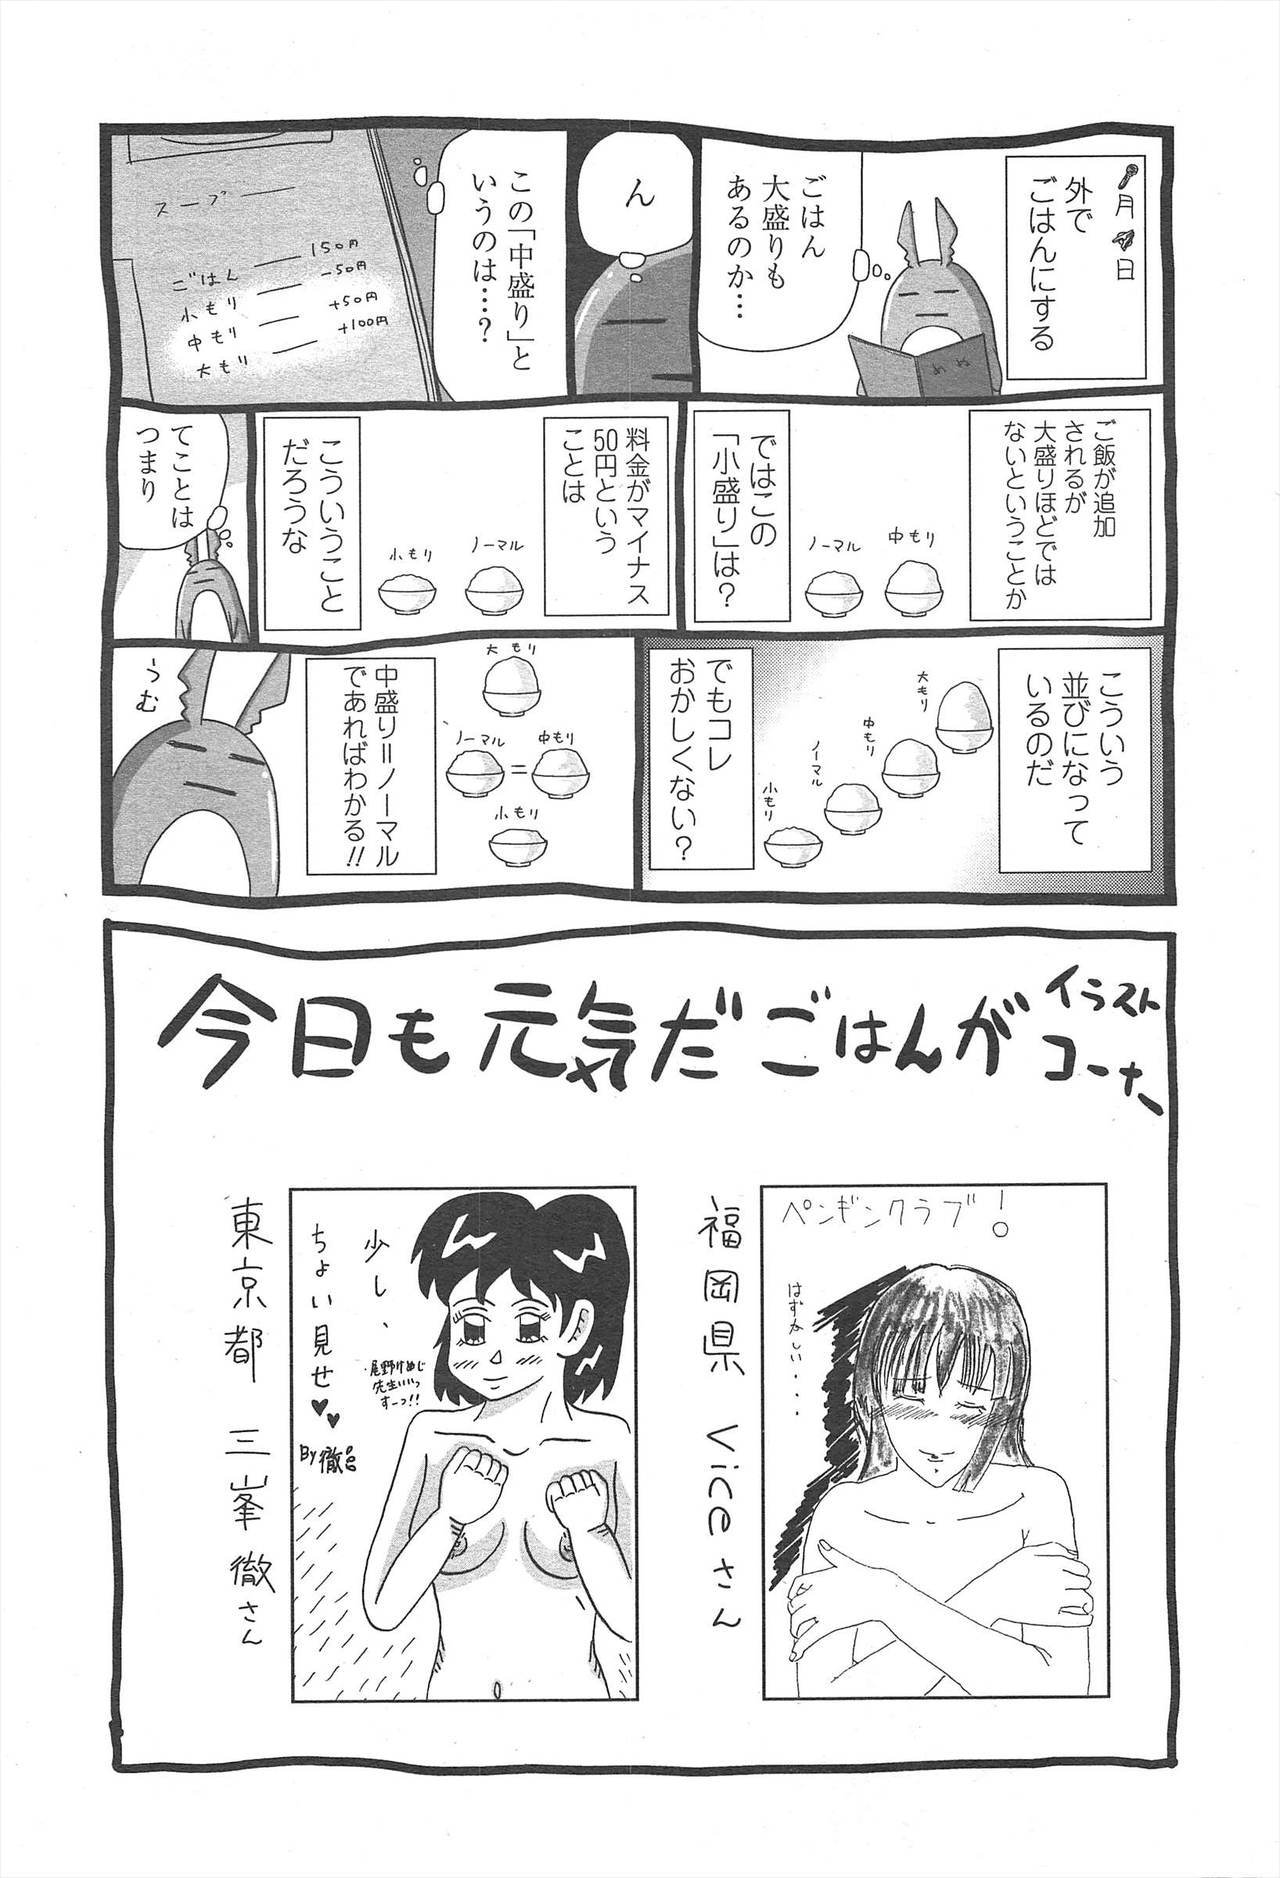 月 日
外で
ごはんにする
めぬ
ごはん
大盛りも
あるのか…
ん
この「中盛り」と
いうのは…?
スープ ――
ごはん ―― 150円
小もり ―― -50円
中もり ―― +50円
大もり ―― +100円
ご飯が追加
されるが
大盛りほどでは
ないということか
中もり
ノーマル
ではこの
「小盛り」は?
料金がマイナス
50円という
ことは
ノーマル
小もり
こういうこと
だろうな
てことは
つまり
こういう
並びになって
いるのだ
大もり
中もり
ノーマル
小もり
でもコレ
おかしくない?
大もり
ノーマル = 中もり
小もり
中盛り=ノーマル
であればわかる!!
うむ
今日も元気だごはんが
イラスト
コーナー
ペンギンクラブ!
はずかしい....
福岡県 Viceさん
少し、
ちょい見せ♥♥
尾野けめじ
先生いいっ
すーっ!!
By 徹
東京都 三峯徹さん